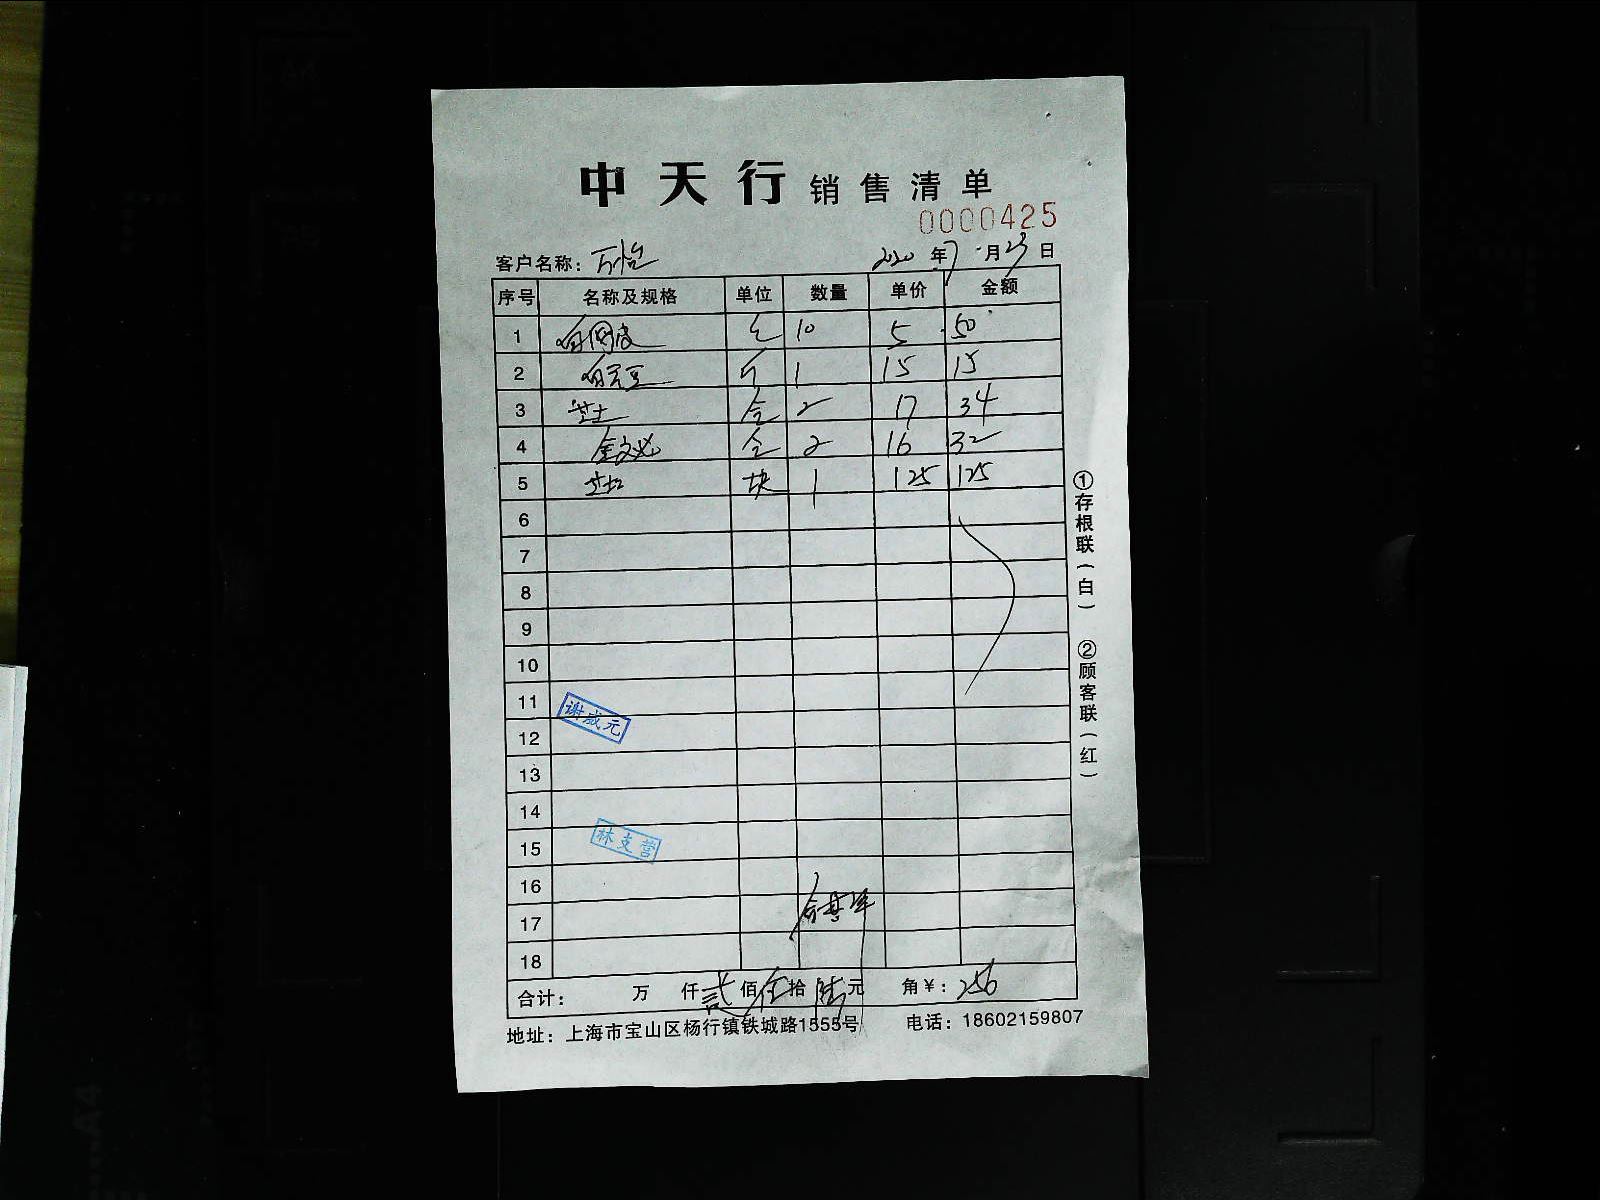 中天行 销售清单
0000425
客户名称： 万怡 2020 年 7 月 23 日
序号 名称及规格 单位 数量 单价 金额
1 10 5 50
2 斤 1 15 15
3 芝士 2 17 34
4 2 16 32
5 块 1 125 125
6
7
8
9
10
11
谢成元
12
13
14
15 林支营
16
17
18
合计： 万 仟 贰 佰 伍 拾 陆 元 角 ¥：256
地址：上海市宝山区杨行镇铁城路1555号 电话：18602159807
①存根联(白) ②顾客联(红)